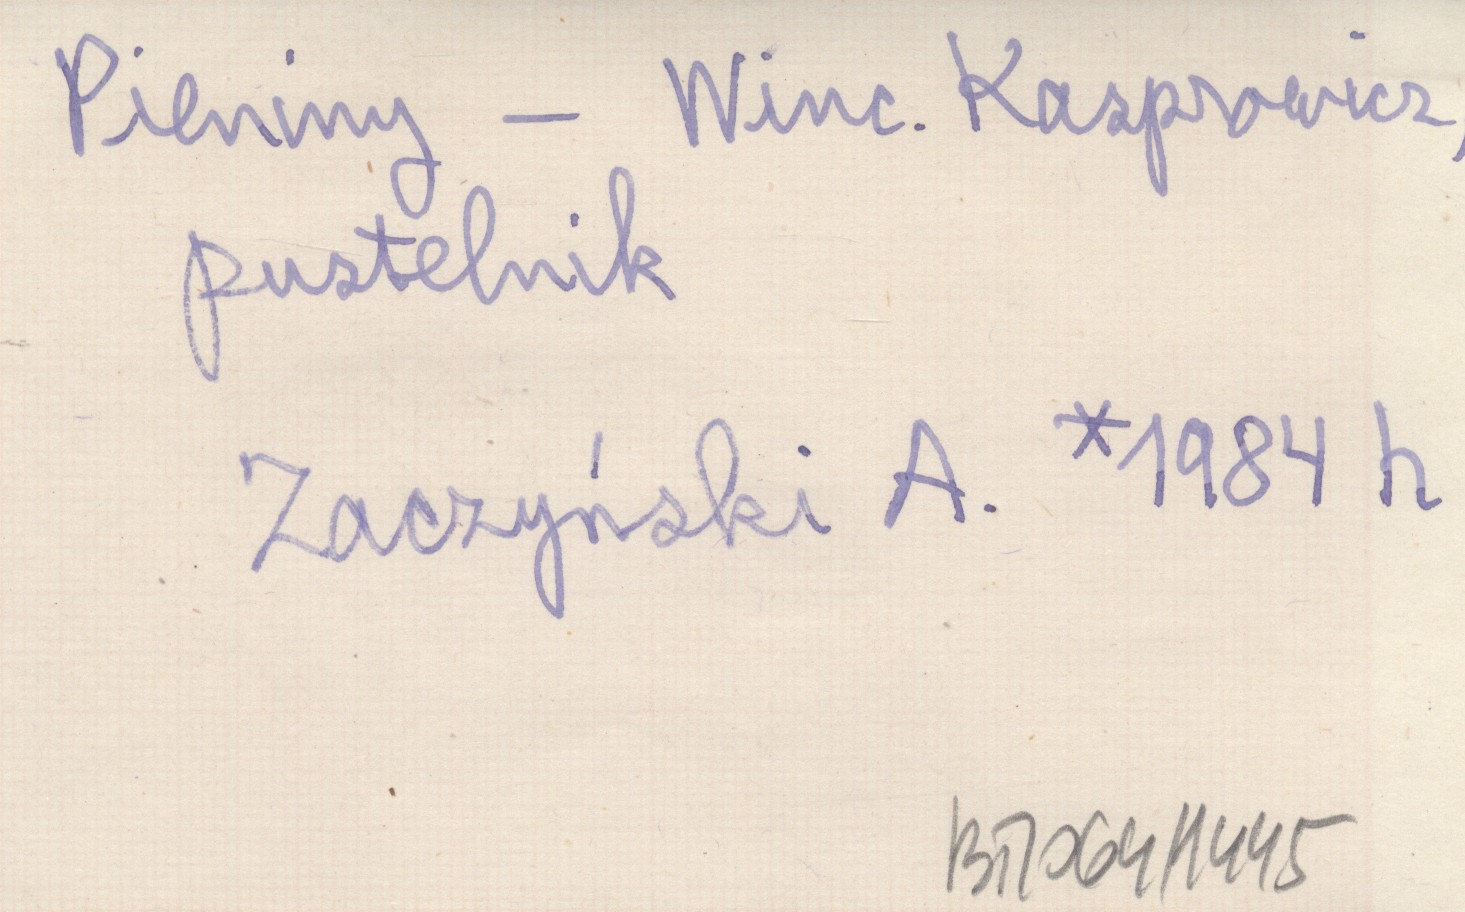 Pieniny – Winc. Kasprowicz,
pustelnik
Zaczyński A. *1984 h